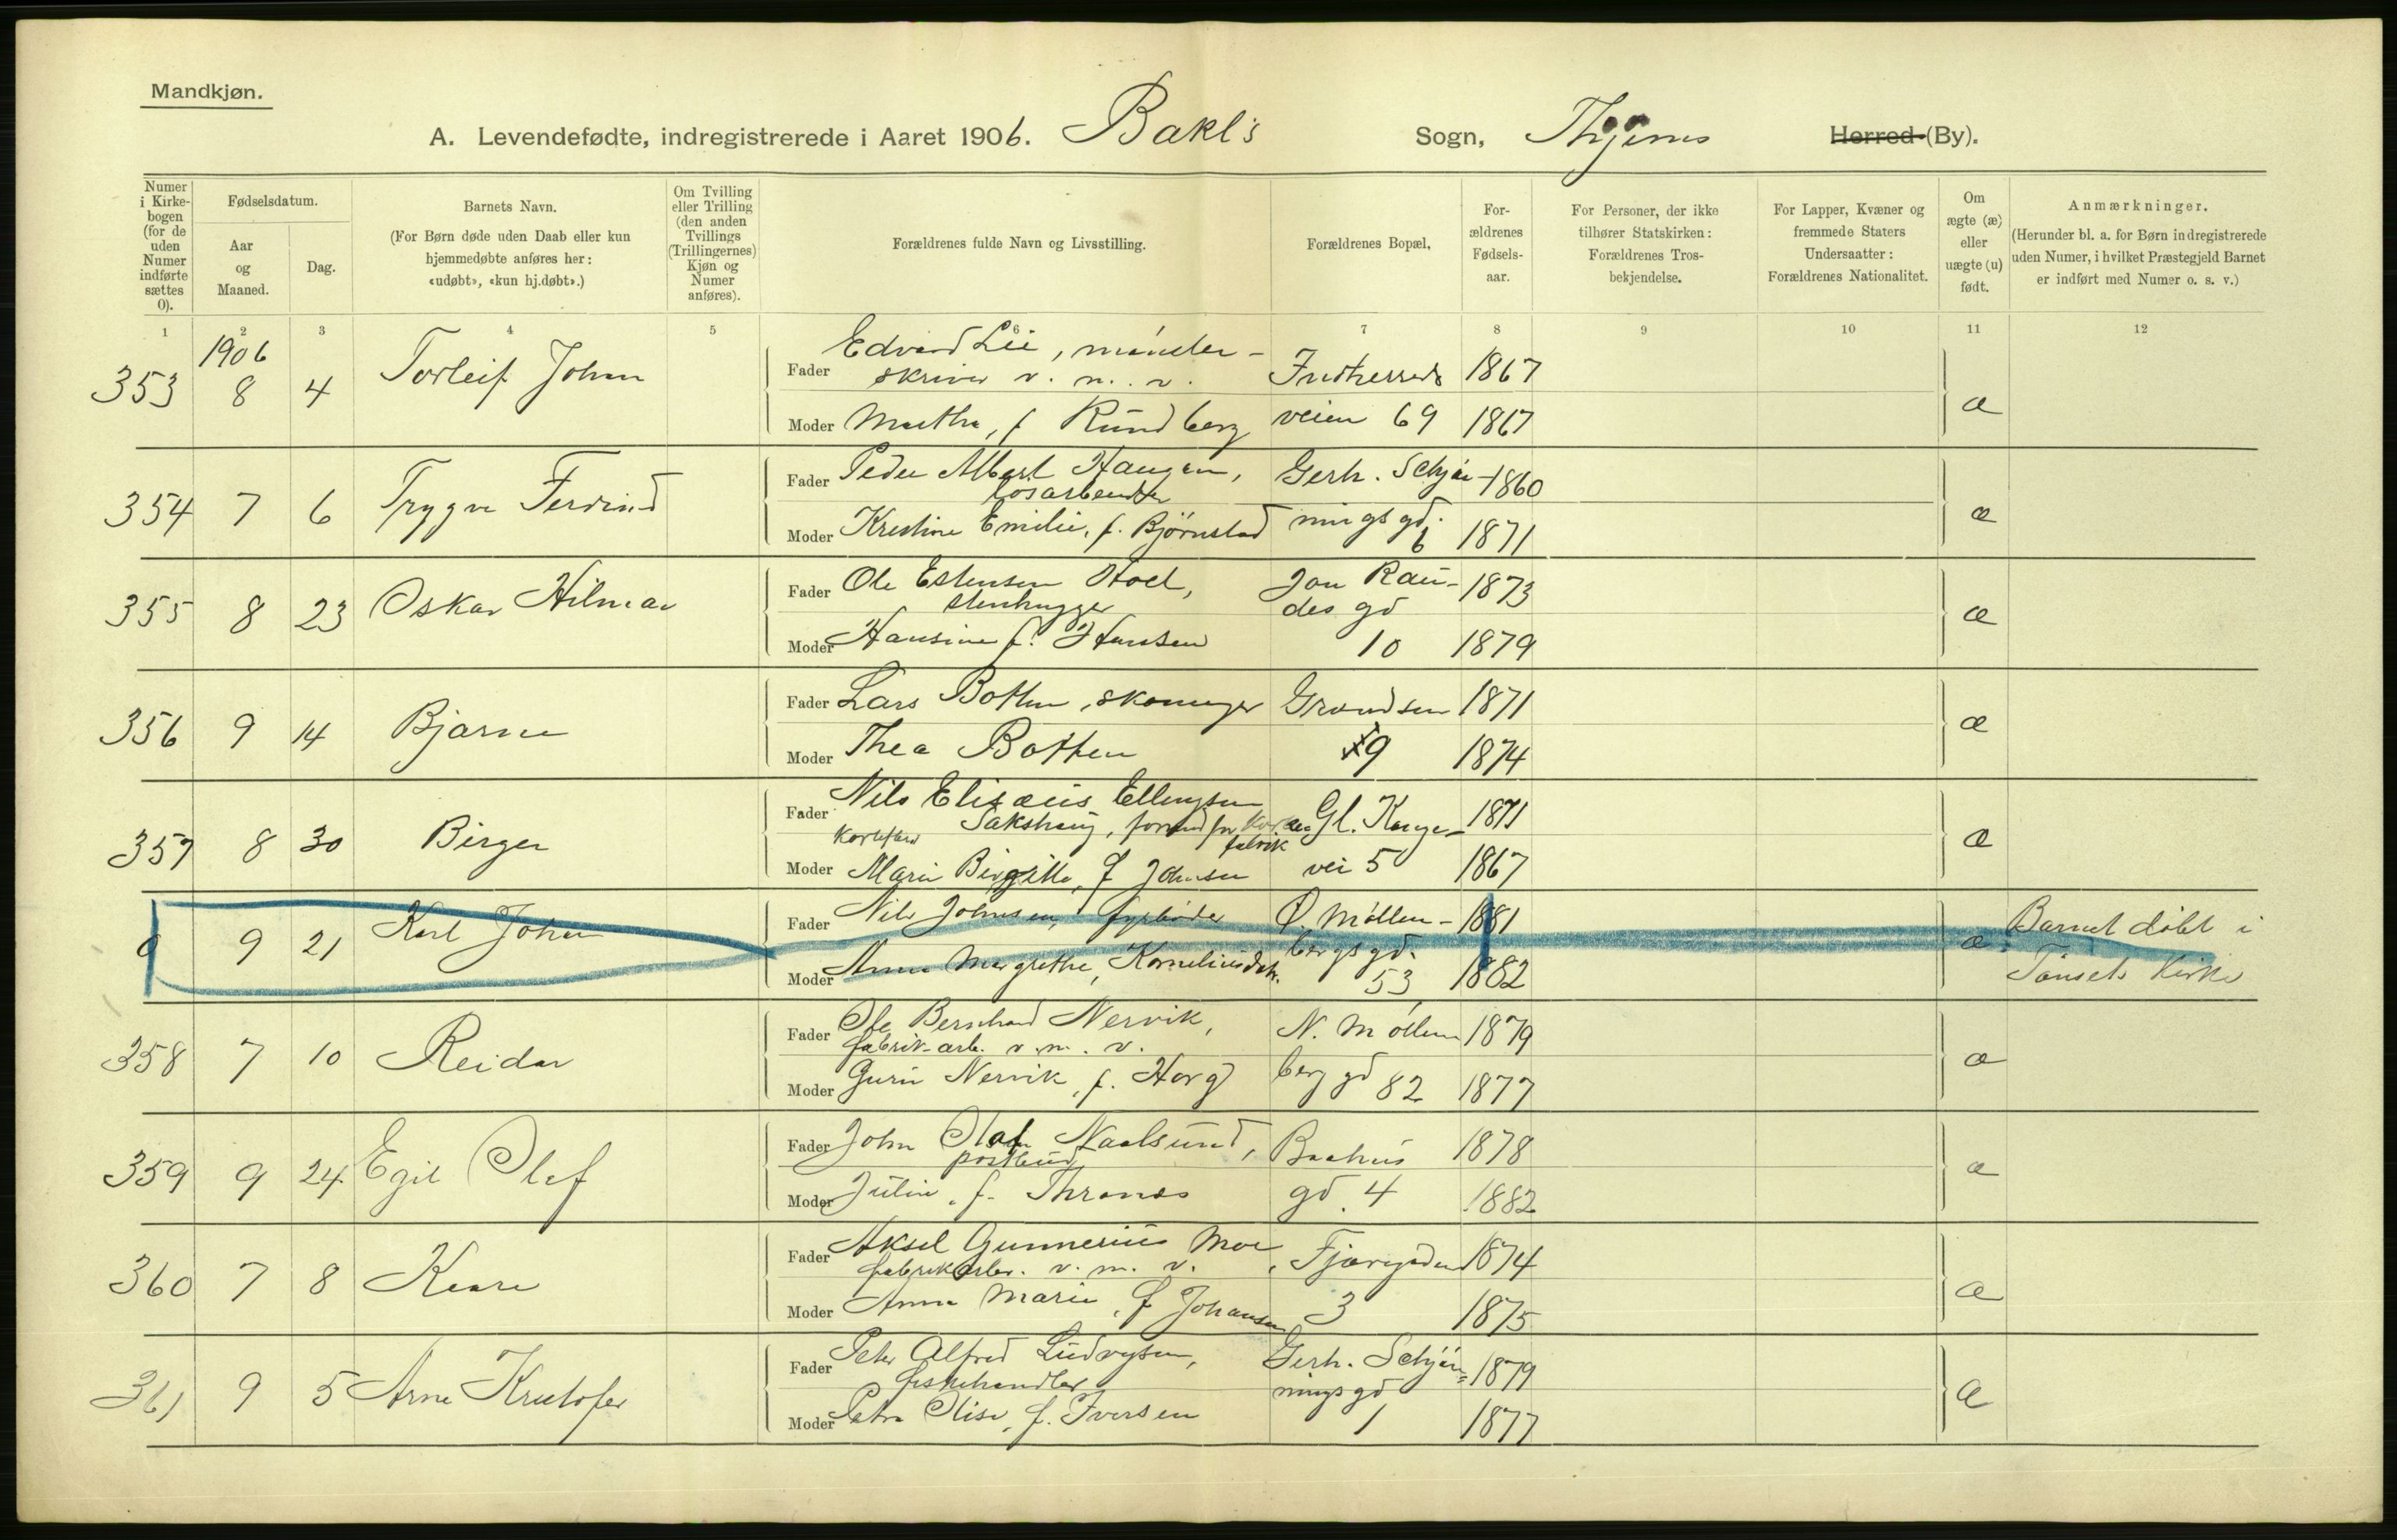 Mandkjøn.
A. Levendefødte, indregistrerede i Aaret 1906. Bakl's Sogn, Thjems Herred (By).
Numer i Kirkebogen (for de uden Numer indførte sættes 0).
Fødselsdatum.
Aar og Maaned.
Dag.
Barnets Navn.
(For Børn døde uden Daab eller kun hjemmedøbte anføres her: «udøbt», «kun hj.døbt».)
Om Tvilling eller Trilling (den anden Tvillings (Trillingernes) Kjøn og Numer anføres).
Forældrenes fulde Navn og Livsstilling.
Forældrenes Bopæl,
Forældrenes Fødselsaar.
For Personer, der ikke tilhører Statskirken: Forældrenes Trosbekjendelse.
For Lapper, Kvæner og fremmede Staters Undersaatter: Forældrenes Nationalitet.
Om ægte (æ) eller uægte (u) født.
Anmærkninger.
(Herunder bl. a. for Børn indregistrerede uden Numer, i hvilket Præstegjeld Barnet er indført med Numer o. s. v.)
1 2 3 4 5 6 7 8 9 10 11 12
1906
353 8 4 Torleif Johan
Fader Edvard Lie, mønster-
skriver v. n. v. Indherreds 1867
Moder Martha, f Rundberg veien 69 1867 æ
354 7 6 Trygve Ferdind
Fader Peder Albert Haugen, Gerh. Schjøn- 1860
løsarbeider
Moder Kristine Emilie, f. Bjørnstad ningsgd. 6 1871 æ
355 8 23 Oskar Hilmar
Fader Ole Estensen Hoel, Jon Rau- 1873
stenhugger des gd
Moder Hansine f. Hansen 10 1879 æ
356 9 14 Bjarne
Fader Lars Botten, skomager Grandsen 1871
Moder Thea Botten 9 1874 æ
357 8 30 Birger
Fader Nils Elisæus Ellingsen
Sakshaug, Gl. Konge- 1871
fabrik
Moder Marie Birgitte, f Johnsen vei 5 1867 æ
0 9 21 Karl Johan
Fader Nils Johnsen, fyrbøder Ø. Møllen- 1881 Barnet døbt i
bergs gd.
Moder Anna Margrethe, Korneliusdtr. 53 1882 æ Tønsets Kirke
358 7 10 Reidar
Fader Ole Bernhard Nervik, N. Møllen 1879
fabrik-arb. v. m. v.
Moder Guru Nervik, f. Horg berg gd 82 1877 æ
359 9 24 Egil Olaf
Fader John Olaf Naalsund, Baahus 1878
postbud
Moder Julie, f. Thranes gd. 4 1882 æ
360 7 8 Kaare
Fader Aksel Gunnerius Moe, Fjæregaden 1874
fabrikarb. v. m. v.
Moder Anna Marie, f Johansen 3 1875 æ
361 9 5 Arne Kristofer
Fader Peter Alfred Ludvigsen, Gerh. Schjøn= 1879
fiskehandler ningsgd
Moder Petra Elise, f. Iversen 1 1877 æ